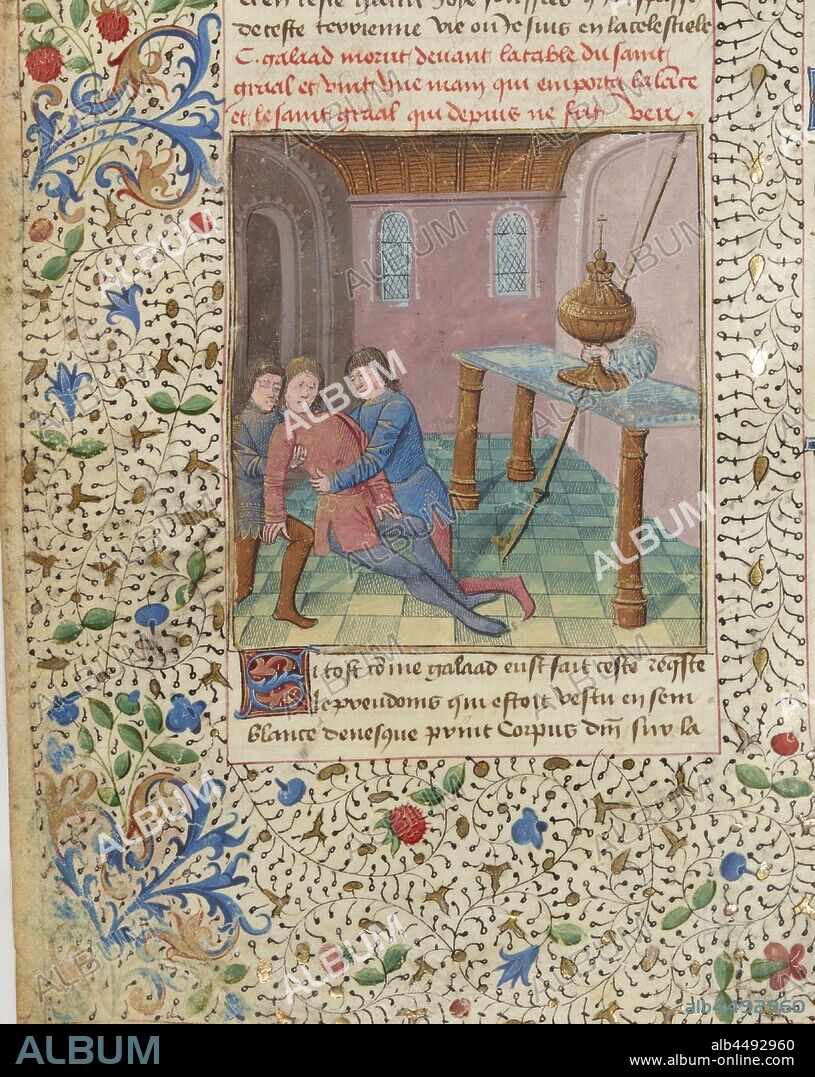 de ceste terrienne vie ou Je suis en la celestiele
C. galaad morut devant la table du saint
graal et vint une main qui emporta la lance
et le saint graal qui depuis ne fut veu.
Si tost come galaad eust fait ceste reqste
le preudoms qui estoit vestu en sem
blance devesque prinst Corpus dni sur la
alb4492960
ALBUM
alb4492960
www.album-online.com